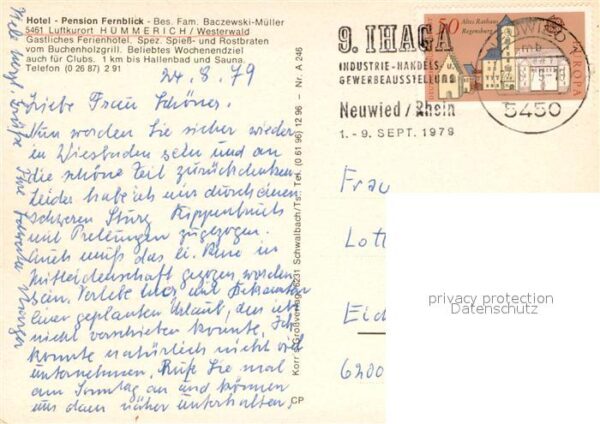 Hotel - Pension Fernblick - Bes. Fam. Baczewski-Müller
5461 Luftkurort HÜMMERICH / Westerwald
Gastliches Ferienhotel. Spez. Spieß- und Rostbraten
vom Buchenholzgrill. Beliebtes Wochenendziel
auch für Clubs. 1 km bis Hallenbad und Sauna.
Telefon (0 26 87) 2 91
24.8.79
Liebe Frau Schöner.
Nun werden Sie sicher wieder
in Wiesbaden sein und an
die schöne Zeit zurückdenken.
Leider habe ich mir durch einen
schweren Sturz Rippenbruch
und Prellungen zugezogen.
Auch muß das li. Knie in
Mitleidenschaft gezogen worden
sein. Verlebe hier mit Bekannten
einen geplanten Urlaub, den ich
nicht verschieben konnte. Ich
konnte natürlich nicht viel
unternehmen. Rufe Sie mal
am Sonntag an und können
uns dann näher unterhalten.
Grüße Ihre
Korr's Großverlag 6231 Schwalbach/Ts. Tel. (0 61 96) 12 96 - Nr. A 246
CP
9. IHAGA
INDUSTRIE-HANDELS-
GEWERBEAUSSTELLUNG
Neuwied / Rhein
1. - 9. SEPT. 1979
50 Altes Rathaus
Regensburg
EUROPA
NEUWIED 1
mb
5450
Frau
Lott
Eid
6200
privacy protection
Datenschutz